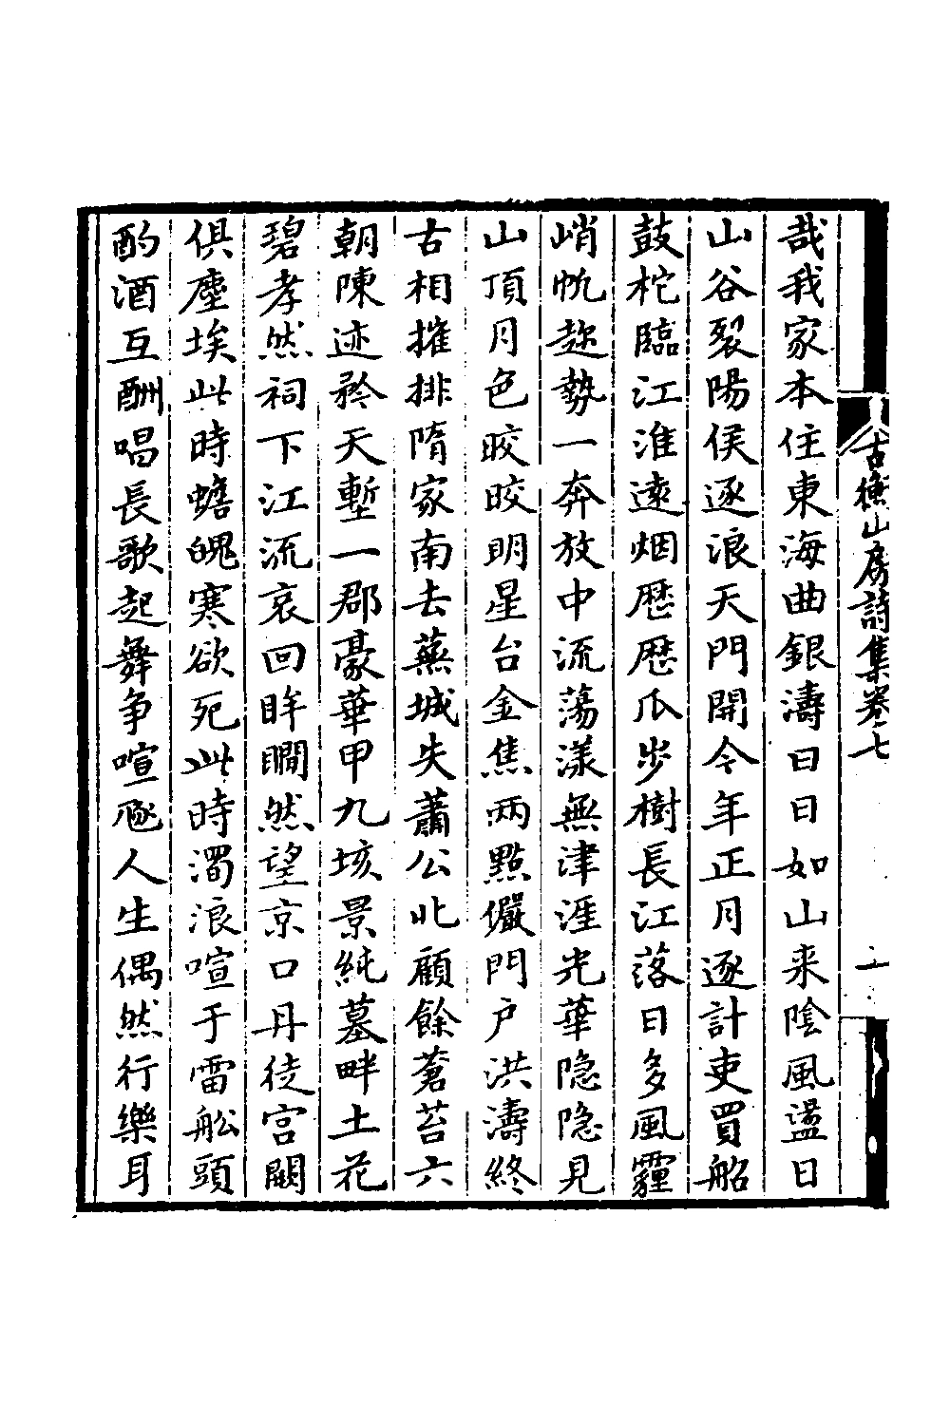 古樵山房詩集卷七
二
哉我家本住東海曲銀濤日日如山来陰風盪日
山谷裂陽侯逐浪天門開今年正月逐計吏買船
鼓柁臨江淮逺烟歴歴瓜步樹長江落日多風霾
峭帆趂勢一奔放中流蕩漾無津涯光華隐隐見
山頂月色晈晈明星台金焦兩點儼門户洪濤終
古相摧排隋家南去蕪城失蕭公北顧餘蒼苔六
朝陳迹矜天塹一郡豪華甲九垓景純墓畔土花
碧孝然祠下江流哀回眸瞷然望京口丹徒宫闕
俱塵埃此時蟾魄寒欲死此時濁浪喧于雷舩頭
酌酒互酬唱長歌起舞争喧豗人生偶然行樂耳